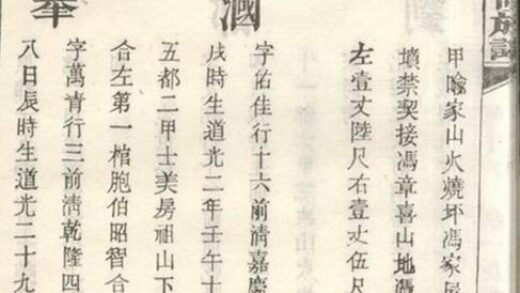 族譜
甲喻家山火燒坪馮家屋
墳禁契接馮章喜山地憑
左壹丈陸尺右壹丈伍尺
涸
字佑佳行十六前清嘉慶
戌時生道光二年壬午十
五都二甲士美房祖山下
合左第一棺胞伯昭智合
奉
字萬青行三前清乾隆四
八日辰時生道光二十九